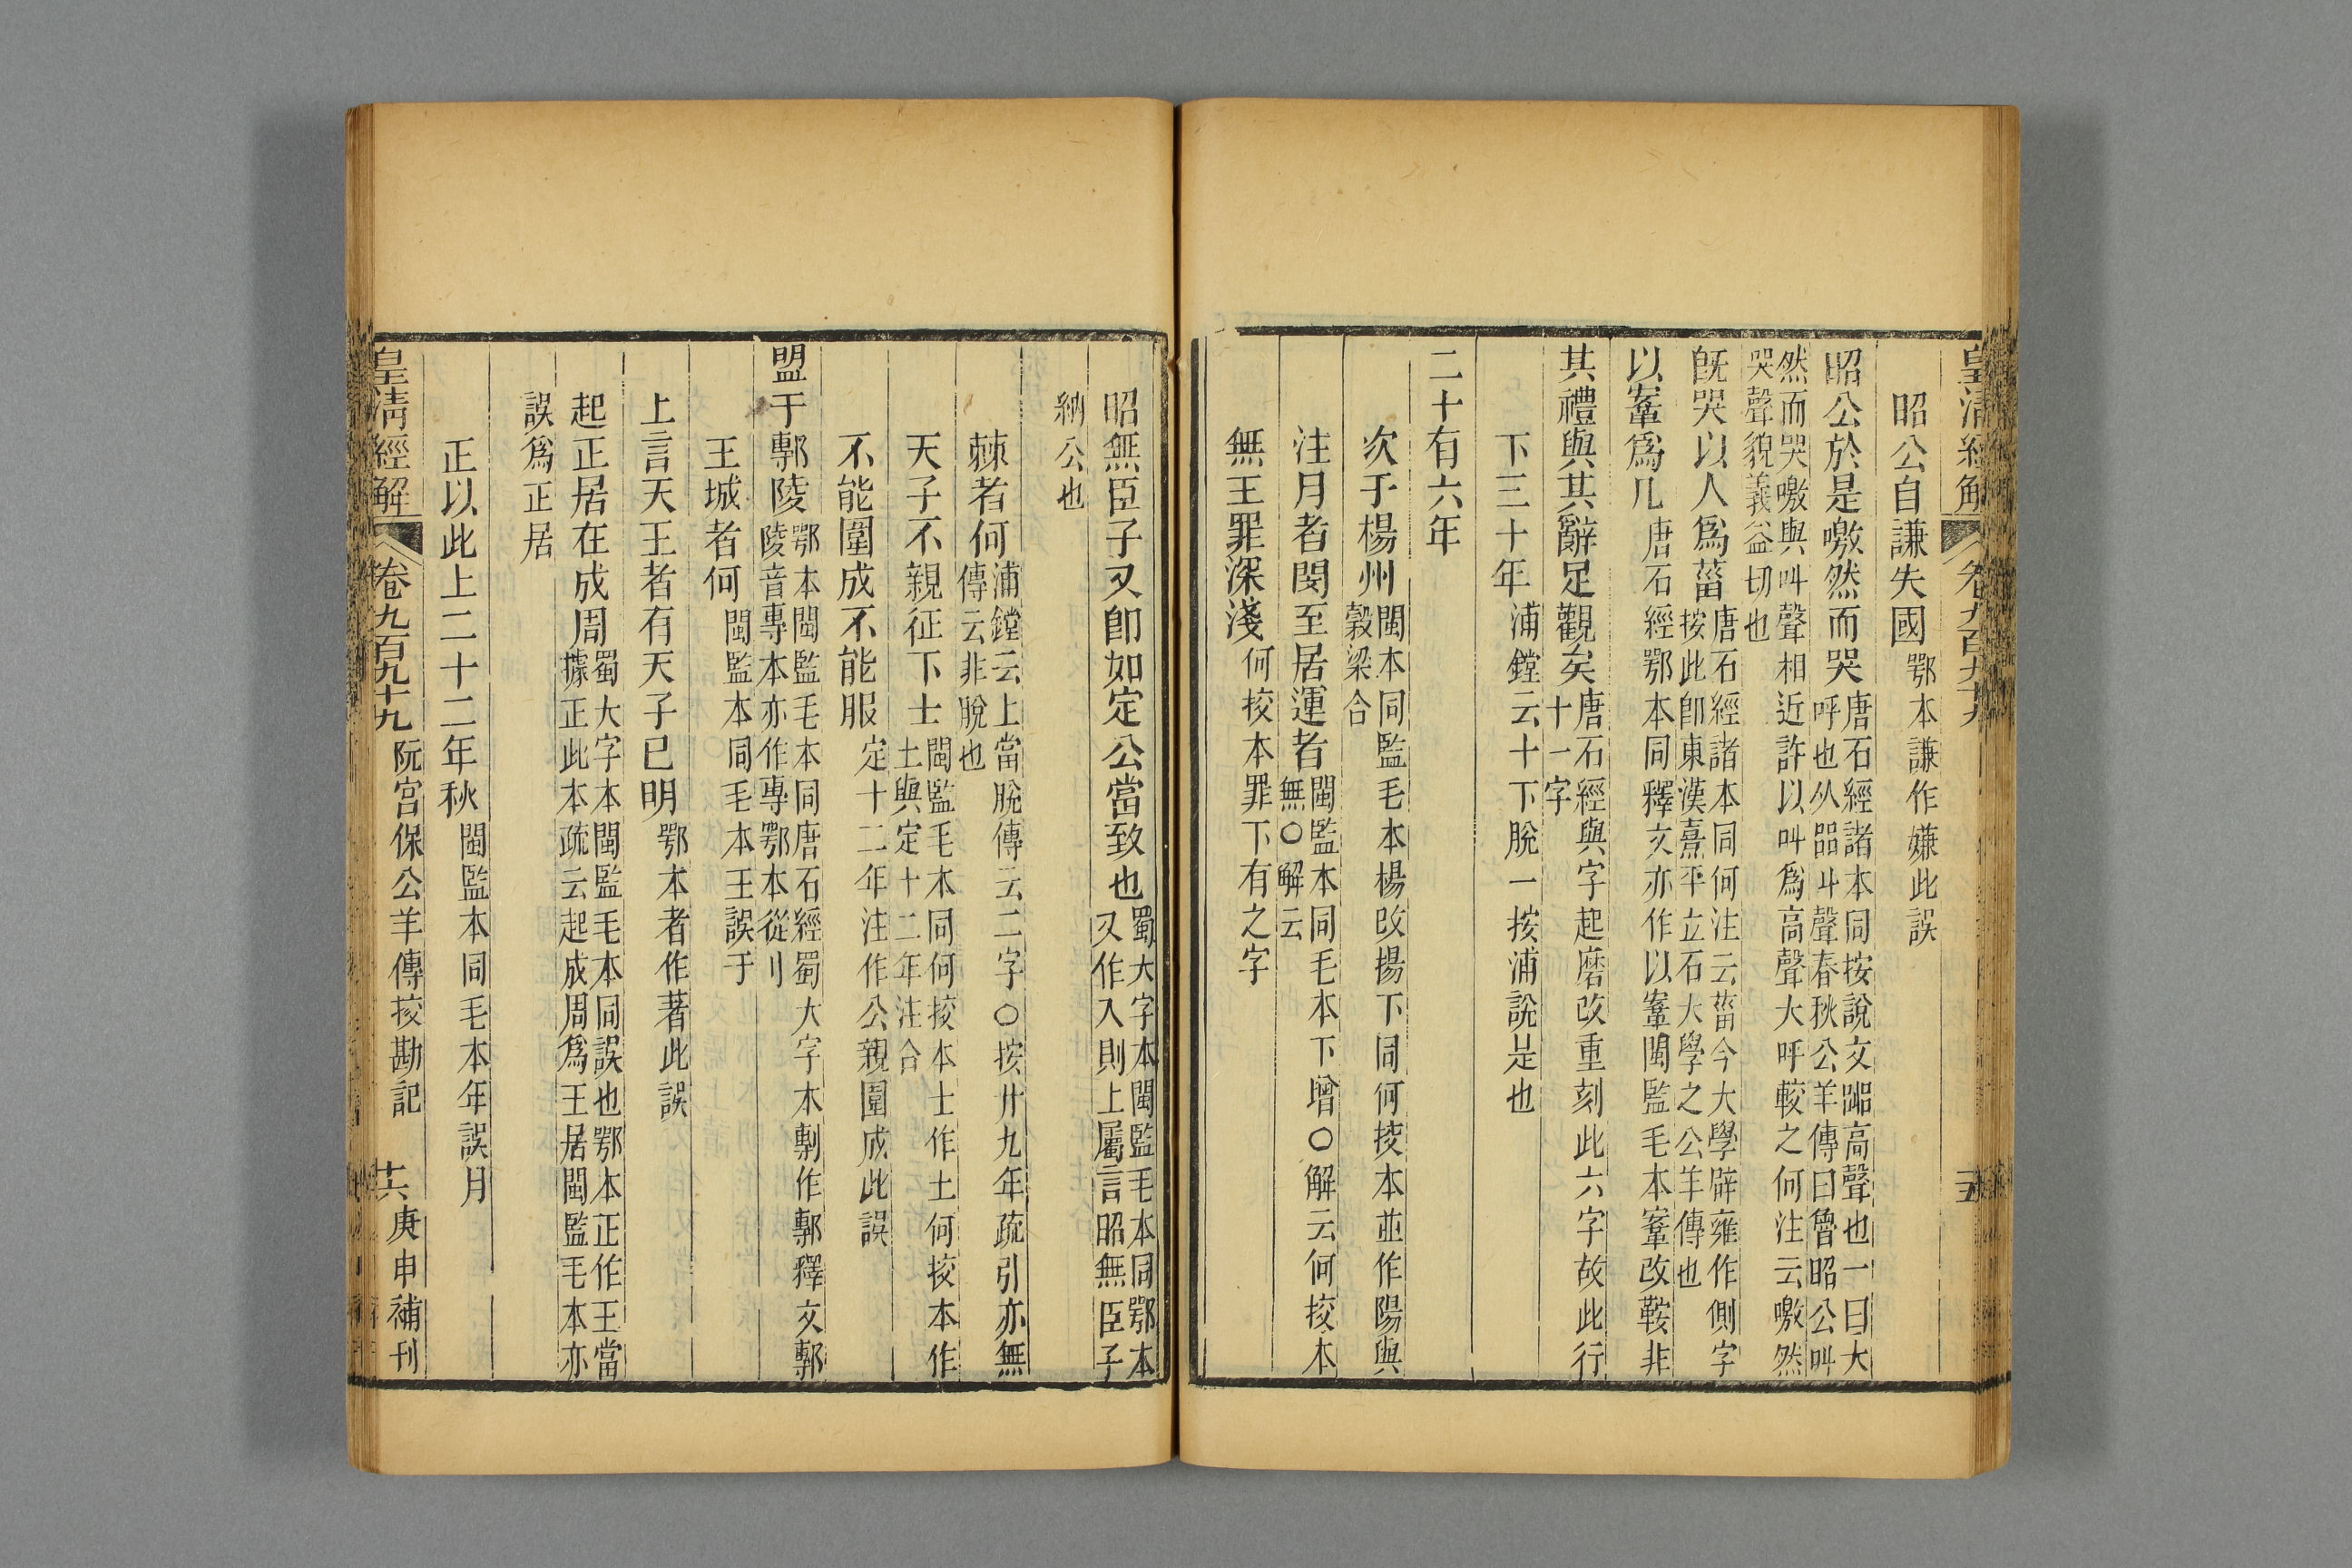 皇清經解 卷九百九十九 十五
昭公自謙失國鄂本謙作嫌此誤
昭公於是噭然而哭唐石經諸本同按說文㗊高聲也一曰大呼也从㗊丩聲春秋公羊傳曰魯昭公叫
然而哭噭與叫聲相近許以叫爲高聲大呼較之何注云噭然哭聲貌義益切也
旣哭以人爲菑唐石經諸本同何注云菑今大學辟雍作側字按此卽東漢熹平立石大學之公羊傳也
以鞌爲几唐石經鄂本同釋文亦作以鞌閩監毛本鞌改鞍非
其禮與其辭足觀矣唐石經與字起磨改重刻此六字故此行十一字
下三十年浦鏜云十下脫一按浦說是也
二十有六年
次于楊州閩本同監毛本楊改揚下同何挍本並作陽與穀梁合
注月者閔至居運者閩監本同毛本下增○解云何挍本無○解云
無王罪深淺何挍本罪下有之字
昭無臣子又卽如定公當致也蜀大字本閩監毛本同鄂本又作入則上屬言昭無臣子
納公也
棘者何浦鏜云上當脫傳云二字○按卄九年疏引亦無傳云非脫也
天子不親征下士閩監毛本同何挍本士作土何挍本作土與定十二年注合
不能圍成不能服定十二年注作公親圍成此誤
盟于鄟陵鄂本閩監毛本同唐石經蜀大字本剸作鄟釋文鄟陵音專本亦作專鄂本從刂
王城者何閩監本同毛本王誤于
上言天王者有天子已明鄂本者作著此誤
起正居在成周蜀大字本閩監毛本同誤也鄂本正作王當據正此本疏云起成周爲王居閩監毛本亦
誤爲正居
正以此上二十二年秋閩監本同毛本年誤月
皇清經解 卷九百九十九 阮宮保公羊傳挍勘記 十六 庚申補刊